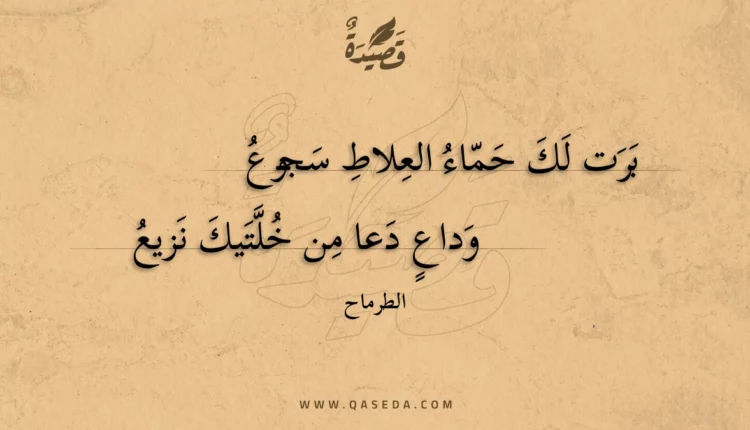 قَصِيْدَةٌ
بَرَت لَكَ حَمّاءُ العِلاطِ سَجوعُ
وَداعٍ دَعا مِن خُلَّتَيكَ نَزيعُ
الطرماح
WWW.QASEDA.COM